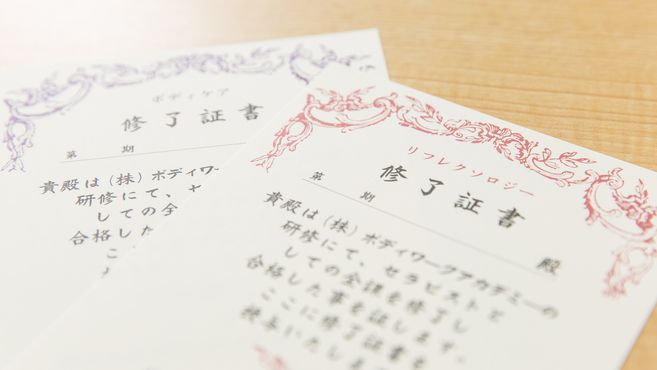 ボディケア
修了証書
第 期
貴殿は（株）ボディワー
研修にて、セ
しての全
合格した
こ
リフレクソロジー
修了証書
第 期
殿
貴殿は（株）ボディワークアカデミーの
研修にて、セラピストと
しての全課を修了し
合格した事を証します。
ここに修了証書を
授与いたしま